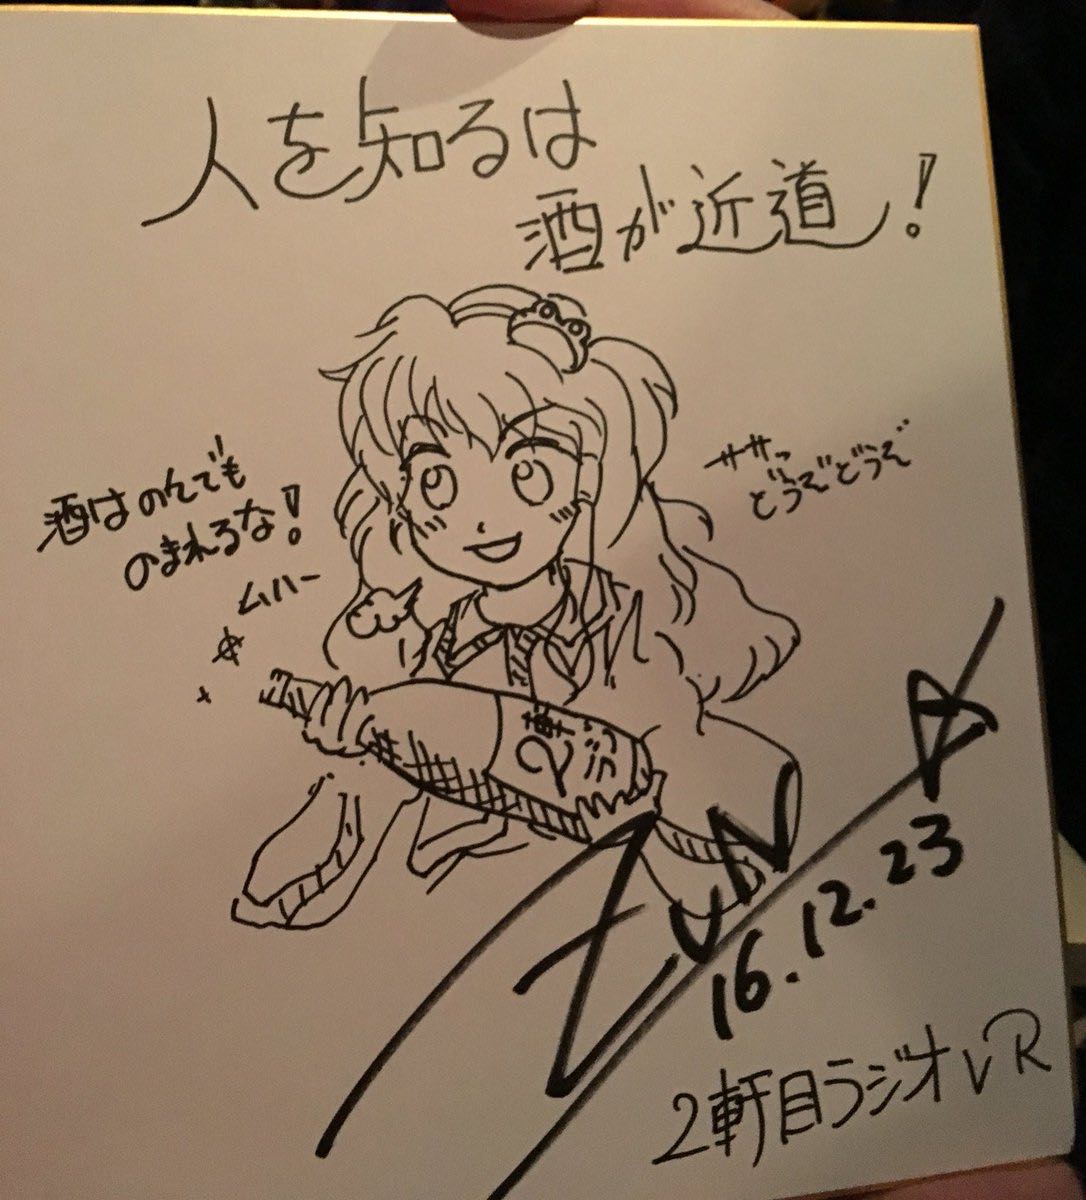 人を知るは
酒が近道!
酒はのんでも
のまれるな!
ムハー
ササッ
どうぞどうぞ
2軒
ラジ
ZUN
16.12.23
2軒目ラジオVR